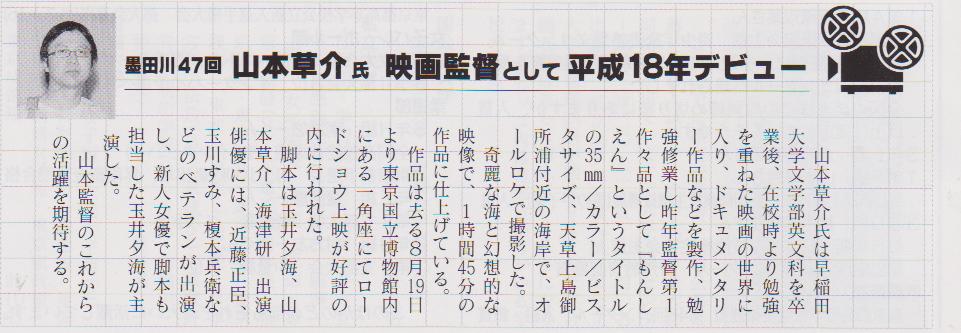 墨田川47回 山本草介氏 映画監督として平成18年デビュー
山本草介氏は早稲田
大学文学部英文科を卒
業後、在校時より勉強
を重ねた映画の世界に
入り、ドキュメンタリ
ー作品などを製作、勉
強修業し昨年監督第1
作々品として『もんし
えん』というタイトル
の35㎜／カラー／ビス
タサイズ、天草上島御
所浦付近の海岸で、オ
ールロケで撮影した。
奇麗な海と幻想的な
映像で、1時間45分の
作品に仕上げている。
作品は去る8月19日
より東京国立博物館内
にある一角座にてロー
ドショウ上映が好評の
内に行われた。
脚本は玉井夕海、山
本草介、海津研 出演
俳優には、近藤正臣、
玉川すみ、榎本兵衛な
どのベテランが出演
し、新人女優で脚本も
担当した玉井夕海が主
演した。
山本監督のこれから
の活躍を期待する。